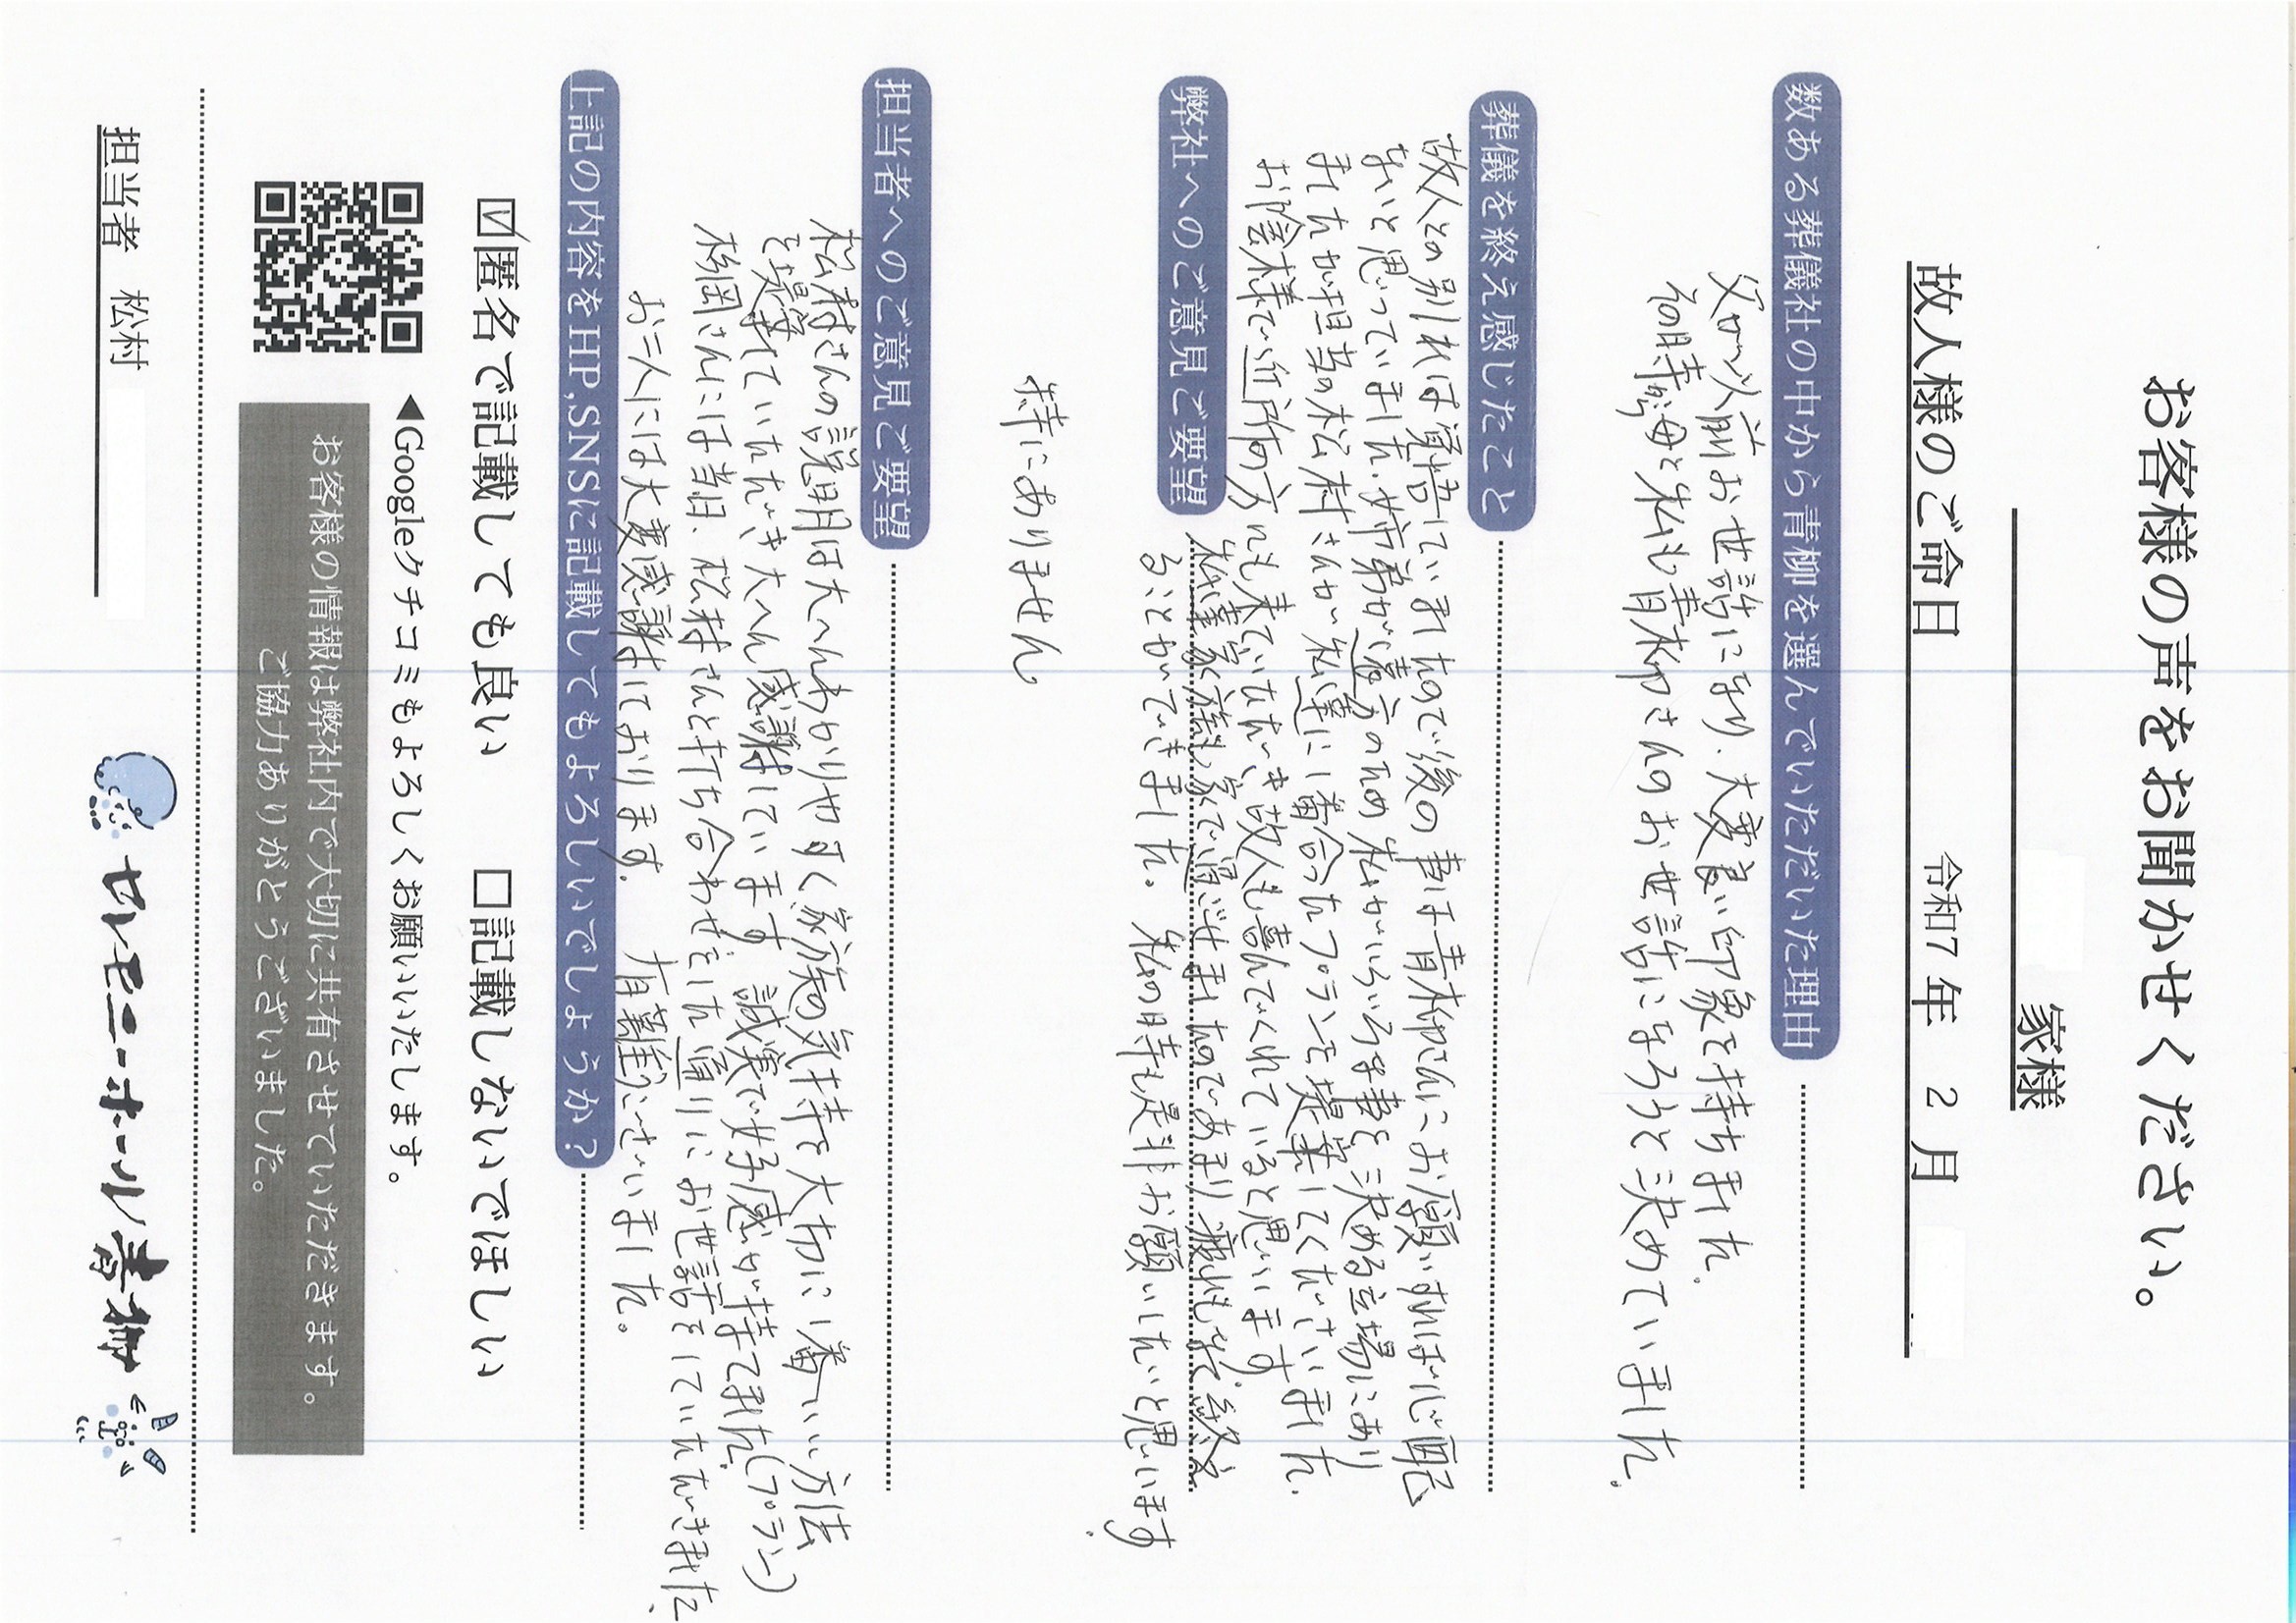 お客様の声をお聞かせください。
家様
故人様のご命日 令和7 年 2 月
数ある葬儀社の中から青柳を選んでいただいた理由
父が以前お世話になり、大変良い印象を持ちました。
その時から母と私も青柳さんのお世話になろうと決めていました。
葬儀を終え感じたこと
故人との別れは覚悟していましたので後の事は青柳さんにお願いすれば心配
ないと思っていました。姉弟が遠方の為私がいろいろな事を決める立場にあり
ましたが担当の松村さんが私達に1番合ったプランを提案してくださいました。
お陰様で近所の方にも来ていただき故人も喜んでくれていると思います。
私達家族も家で過ごせましたのであまり疲れもせず、終え
ることができました。 私の時も是非お願いしたいと思います。
弊社へのご意見ご要望
特にありません
担当者へのご意見ご要望
松村さんの説明は大へんわかりやすく家族の気持を大切に1番いい方法
を提案していただき大へん感謝しています 誠実で好感が持てました。(プラン)
松岡さんには当日、松村さんと打ち合わせをした通りにお世話をしていただきました。
お二人には大変感謝しております。 有難うございました。
上記の内容をHP,SNSに記載してもよろしいでしょうか?
☑匿名で記載しても良い □記載しないでほしい
◀Googleクチコミもよろしくお願いいたします。
お客様の情報は弊社内で大切に共有させていただきます。
ご協力ありがとうございました。
担当者 松村
セレモニーホール青柳